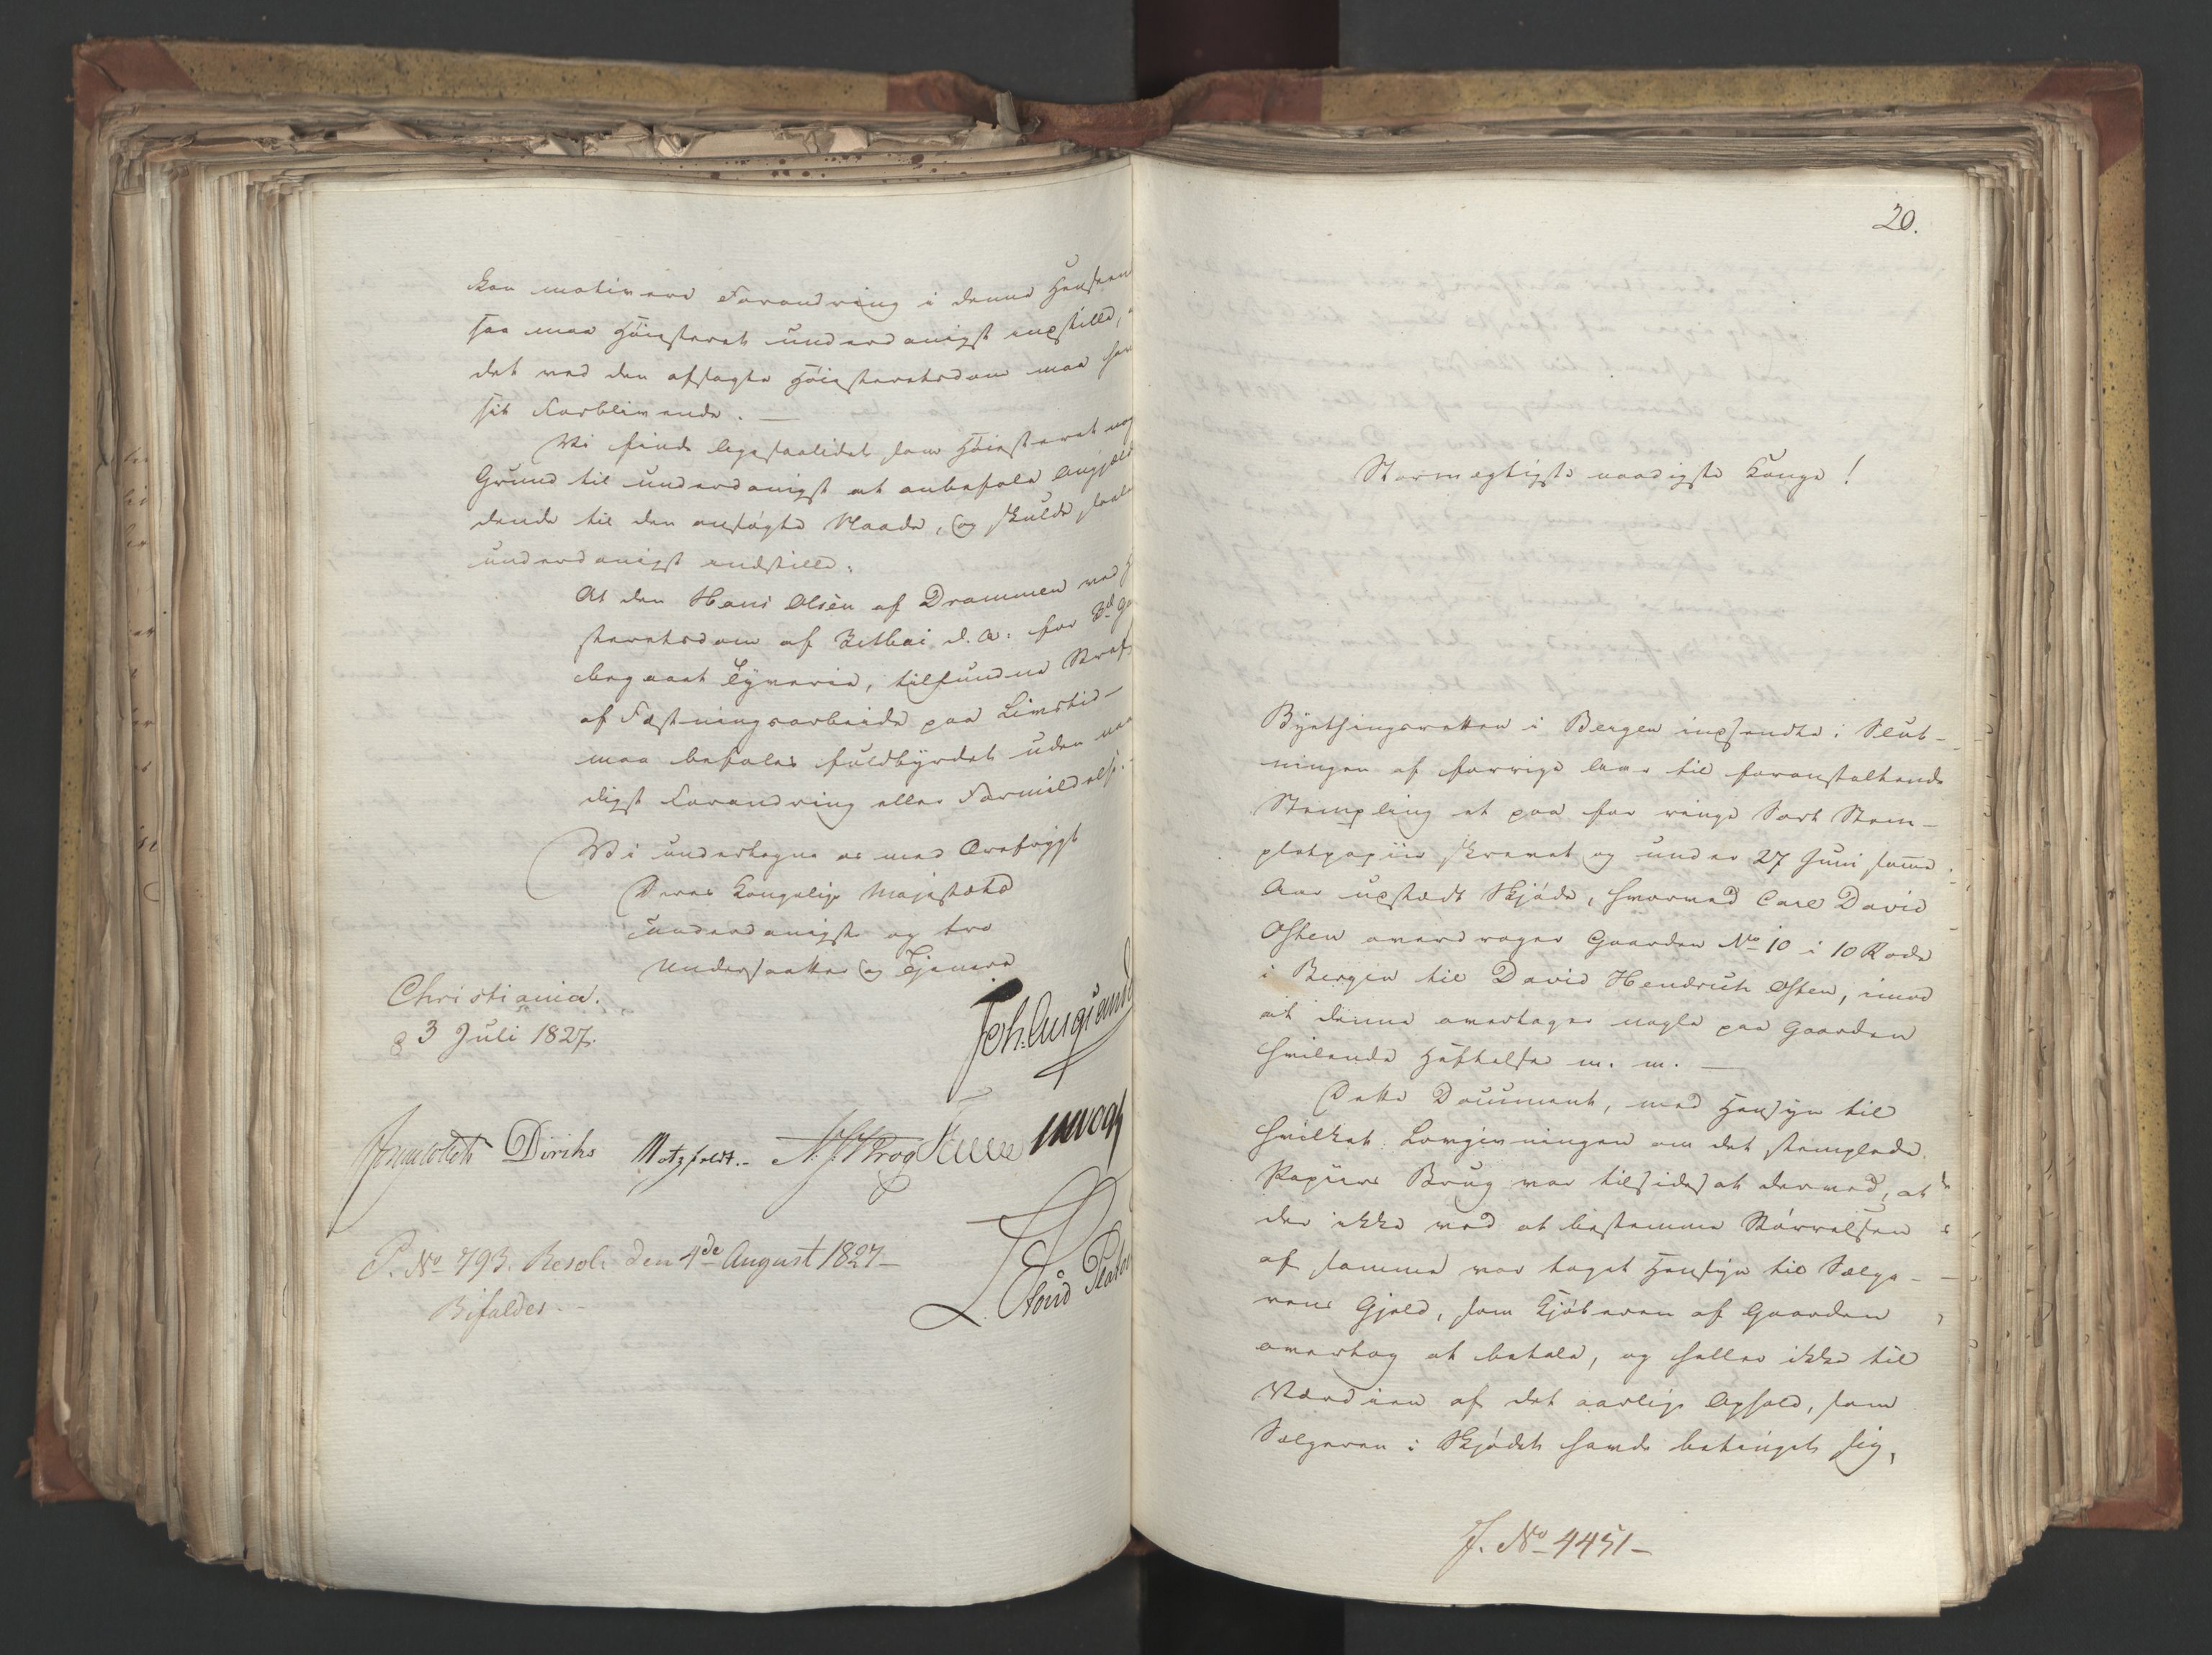 kan motivere Forandring i denne Henseen
saa maa Høiesteret underdanigst indstille,
det ved den afsagte Høiesteretsdom maa have
sit Forblivende. —
Vi finde ligesaalidet som Høiesteret nog
Grund til underdanigst at anbefale Angjæl
dende til den ansøgte Naade, og skulde saale
underdanigst indstille:
At den Hans Olsen af Drammen ved H
steretsdom af Mai d. A. for 3d Ga
begaaet Tyverie, tilfundne Straf
af Fæstningsarbeide paa Livstid
maa befales fuldbyrdet uden naa
digst Forandring eller Formildelse. —
Vi undertegne os med Ærefrygt
Deres Kongelige Majestæts
underdanigste og troe
Undersaatter og Tjenere
Christiania.
d 3 Juli 1827.
Joh. Aug. Sand
Diriks Motzfeldt. N. J. Krog
P. No 793. Resol. den 4de August 1827 —
Bifaldes. —
20.
Stormægtigste naadigste Konge!
Byethingsretten i Bergen indsendte i Slut-
ningen af forrige Aar til foranstaltende
Stempling et paa for ringe Sort Stem-
pletpapiir skrevet og under 27 Juni samme
Aar udstædt Skjøde, hvorved Carl David
Osten overdrager Gaarden No 10 i 10 Rode
i Bergen til David Hendrich Osten, imod
at denne overtager nogle paa Gaarden
hvilende Hæftelser m. m. —
Dette Document, med Hensyn til
hvilket Lovgivningen om det stemplede
Papiirs Brug var tilsidesat derved, at
der ikke ved at bestemme Størrelsen
af samme var taget Hensyn til Sælge-
rens Gjeld, som Kjøberen af Gaarden
overtog at betale, og heller ikke til
Værdien af det aarlige Ophold, som
Sælgeren i Skjødet havde betinget sig,
J. No 4451 —